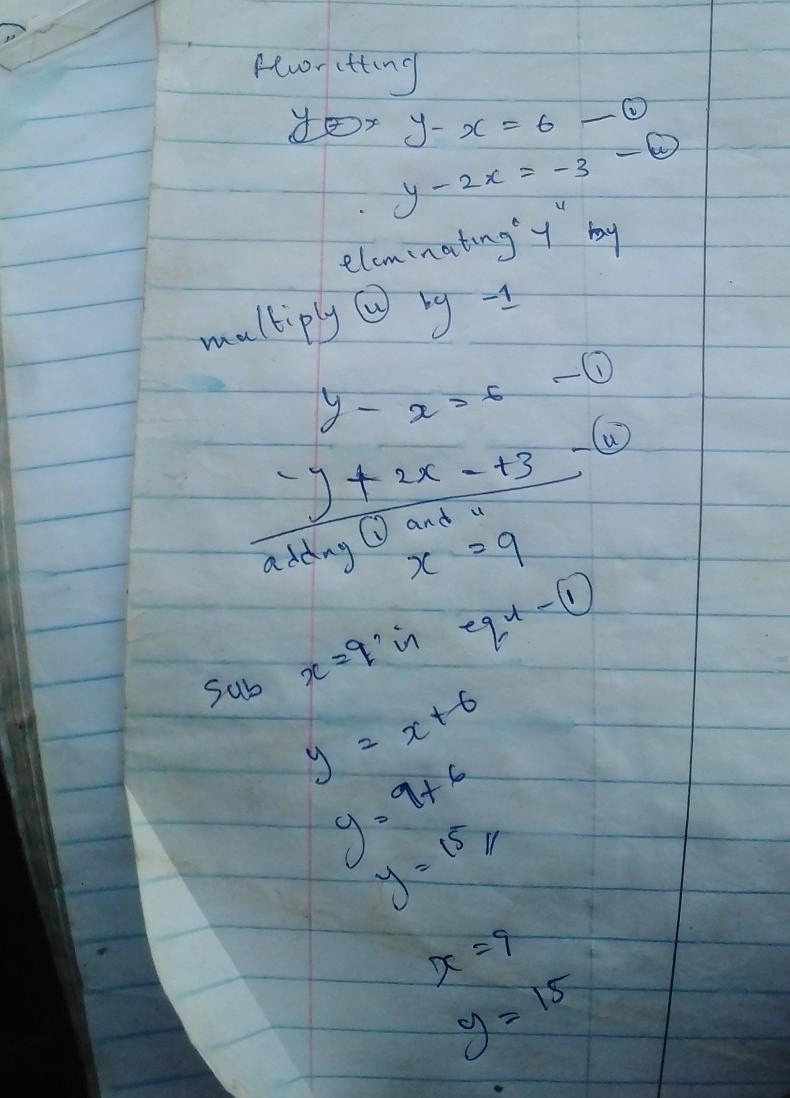 Rewritting
y - x = 6 — (i)
y - 2x = -3 — (ii)
eliminating "y" by
multiply (ii) by -1
y - x = 6 — (i)
-y + 2x = +3 — (ii)
addng (i) and "
x = 9
Sub x=9 in eqn - (1)
y = x+6
y = 9+6
y = 15 //
x = 9
y = 15